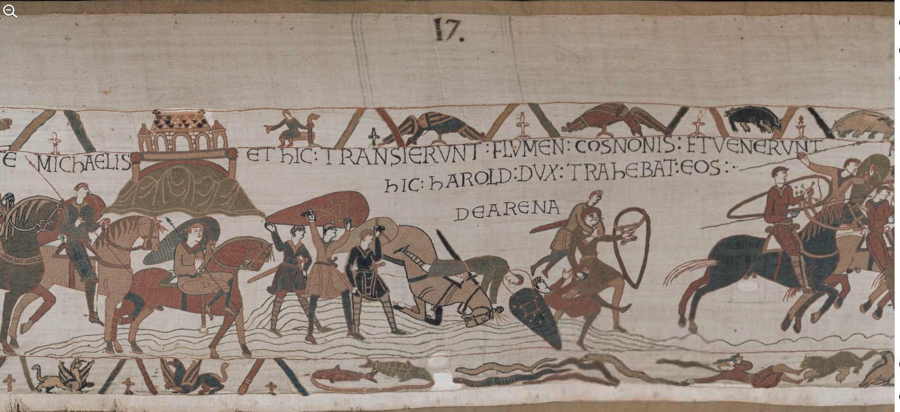 17.
E MICHAELIS ET hIC: TRANSIERVNT: FLVMEN: COSNONIS: ETVENERVNT
hIC: hAROLD: DVX: TRAhEBAT: EOS:
DEARENA